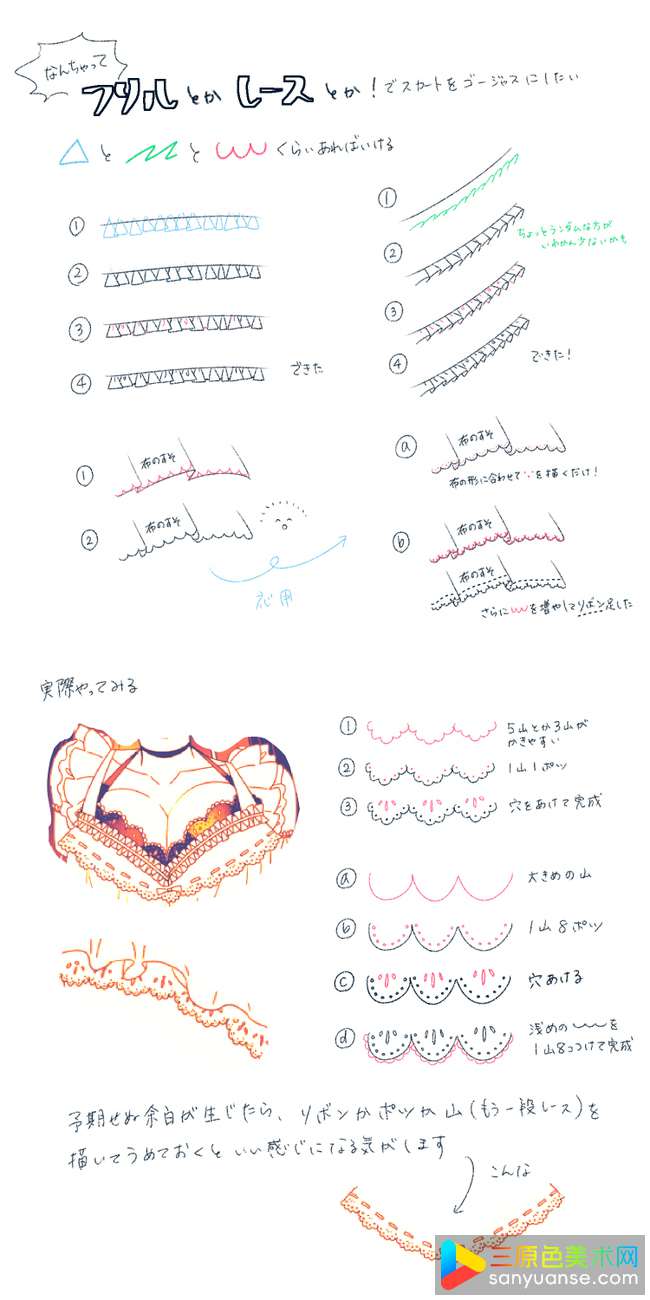 なんちゃって
フリルとか レースとか！でスカートをゴージャスにしたい
と と くらいあればいける
① ①
ちょっとランダムな方が
いわかん少ないかも
② ②
③ ③
④ できた ④ できた！
① 布のすそ
ⓐ 布のすそ
布の形に合わせて を描くだけ！
② 布のすそ
ⓑ 布のすそ
布のすそ
応用
さらに を増やしてリボン足した
実際やってみる
① 5山とか3山が
かきやすい
② 1山1ポツ
③ 穴をあけて完成
ⓐ 大きめの山
ⓑ 1山8ポツ
ⓒ 穴あける
ⓓ 浅めの を
1山8コつけて完成
予期せぬ余白が生じたら、リボンかポツか山（もう一段レース）を
描いてうめておくといい感じになる気がします
こんな
三原色美术网
sanyuanse.com